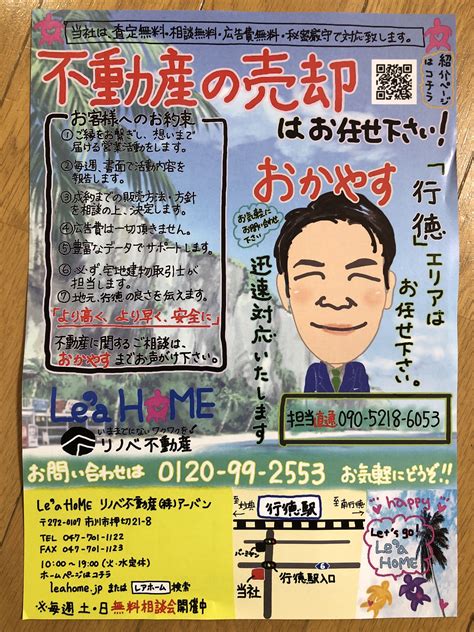 当社は、査定無料・相談無料・広告費無料・秘密厳守で対応致します。
不動産の売却
はお任せ下さい!
紹介ページ
はコチラ
お客様へのお約束
①ご縁をお繋ぎし、想いまで
届ける営業活動をします。
②毎週、書面で活動内容を
報告します。
③成約までの販売方法・方針
を相談の上、決定します。
④広告費は一切頂きません。
⑤豊富なデータでサポートします。
⑥必ず、宅地建物取引士が
担当します。
⑦地元、行徳の良さを伝えます。
「より高く、より早く、安全に」
不動産に関するご相談は、
おかやすまでお声がけ下さい。
おかやす
お気軽に
お問い合わせ
下さい
「行徳」エリアは
お任せ下さい。
迅速対応いたします
Le'a HOME
いままでにないワクワクを
リノベ不動産
担当直通 090-5218-6053
お問い合わせは 0120-99-2553 お気軽にどうぞ!!
Le'a HOME リノベ不動産(株)アーバン
〒272-0107 市川市押切21-8
TEL 047-701-1122
FAX 047-701-1123
10:00~19:00(火・水定休)
ホームページはコチラ
leahome.jp または レアホーム 検索
※毎週土・日無料相談会開催中
行徳駅
至妙典
至南行徳
行徳駅入口
当社
happy
Let's go!
Le'a
HOME